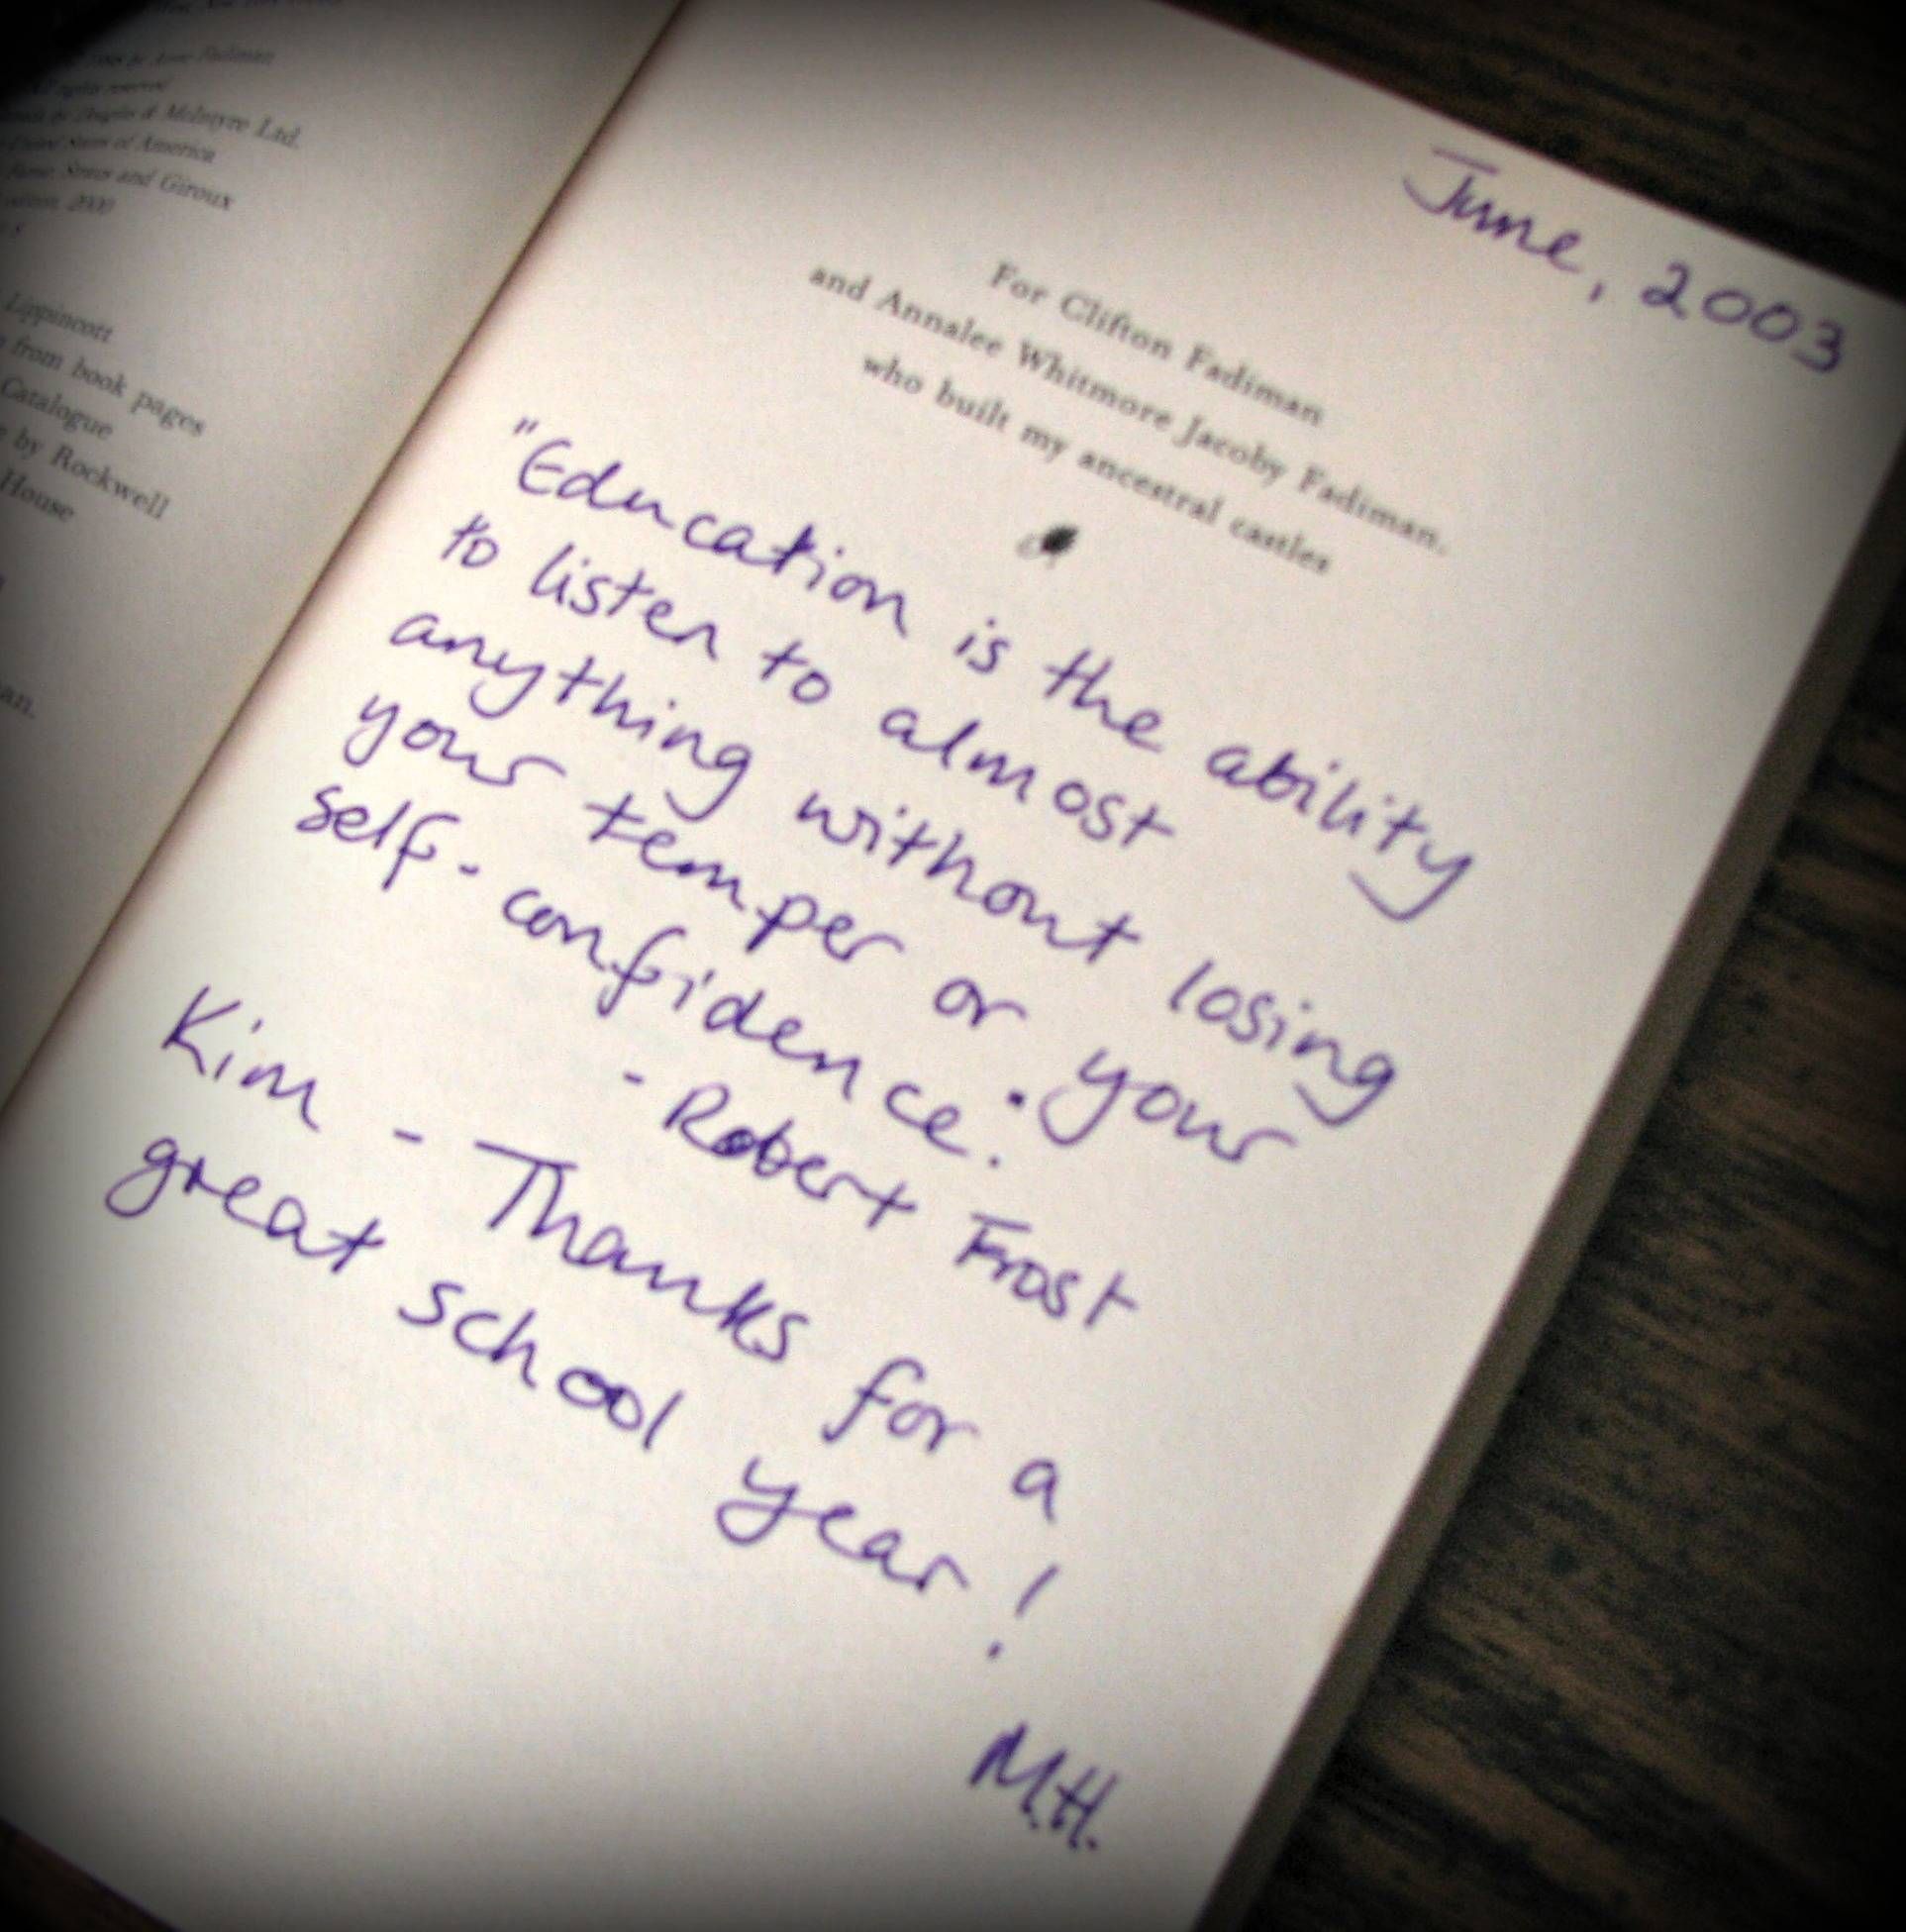 by Anne Fadiman
All rights reserved
by Douglas & McIntyre Ltd.
United States of America
Farrar, Straus and Giroux
2000
Lippincott
from book pages
Catalogue
by Rockwell
House
an.
June, 2003
For Clifton Fadiman
and Annalee Whitmore Jacoby Fadiman,
who built my ancestral castles
"Education is the ability
to listen to almost
anything without losing
your temper or your
self-confidence."
- Robert Frost
Kim - Thanks for a
great school year!
M.H.